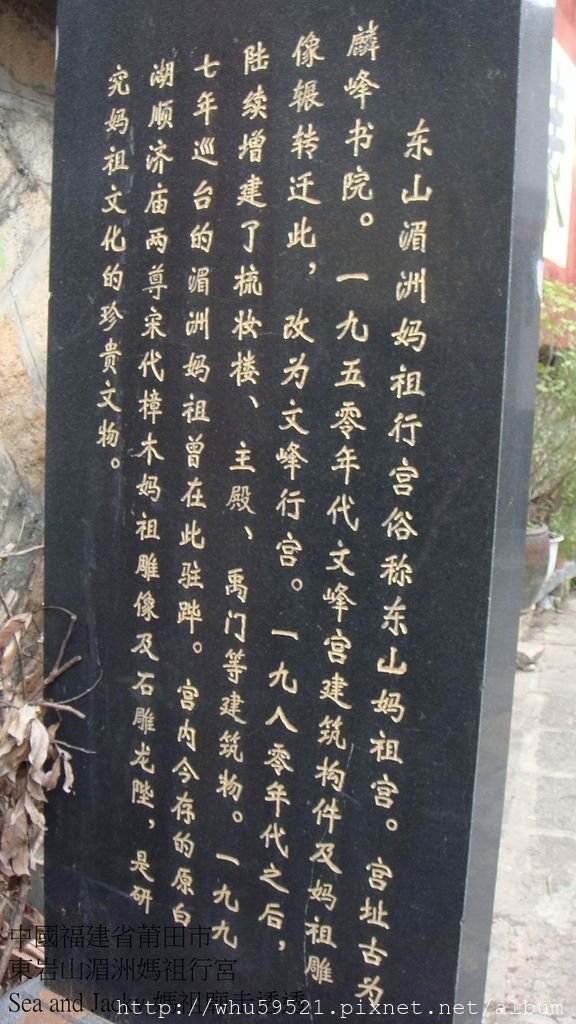 东山湄洲妈祖行宫俗称东山妈祖宫。宫址古为
麟峰书院。一九五零年代文峰宫建筑构件及妈祖雕
像辗转迁此，改为文峰行宫。一九八零年代之后，
陆续增建了梳妆楼、主殿、禹门等建筑物。一九九
七年巡台的湄洲妈祖曾在此驻跸。宫内今存的原白
湖顺济庙两尊宋代樟木妈祖雕像及石雕龙陛，是研
究妈祖文化的珍贵文物。
中國福建省莆田市
東岩山湄洲媽祖行宮
Sea and Jacky 媽祖廟走透透
http://whu59521.pixnet.net/album